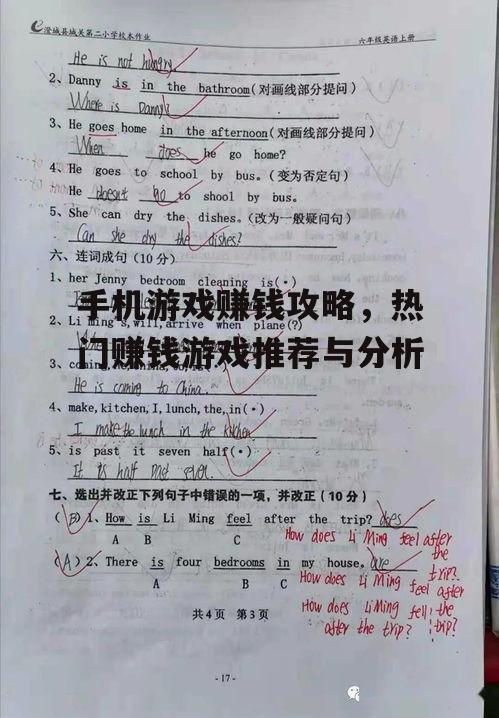 澄城县城关第二小学校本作业 六年级英语上册
He is not hungry
2、Danny is in the bathroom(对画线部分提问)
Where is Danny?
3、He goes home in the afternoon(对画线部分提问)
When does he go home?
4、He goes to school by bus.(变为否定句)
He doesn't go to shool by bus.
5、She can dry the dishes.(改为一般疑问句)
Can she dry the dishes?
六、连词成句(10分)
1、her Jenny bedroom cleaning is(·)
手机游戏赚钱攻略，热
2、Li Ming's,will,arrive when plane(?)
门赚钱游戏推荐与分析
He is coming to China.
4、make,kitchen,I,lunch,the,in(·)
I make the lunch in the kitchen
5、is past it seven half(·)
It is half past seven.
七、选出并改正下列句子中错误的一项，并改正(10分)
(B)1、How is Li Ming feel after the trip? does
A B C
How does Li Ming feel after the trip?
(A)2、There is four bedrooms in my house. are
A B C
How does Li Ming feel after the trip?
How does Li Ming fell after the trip?
共4页 第3页
-17-